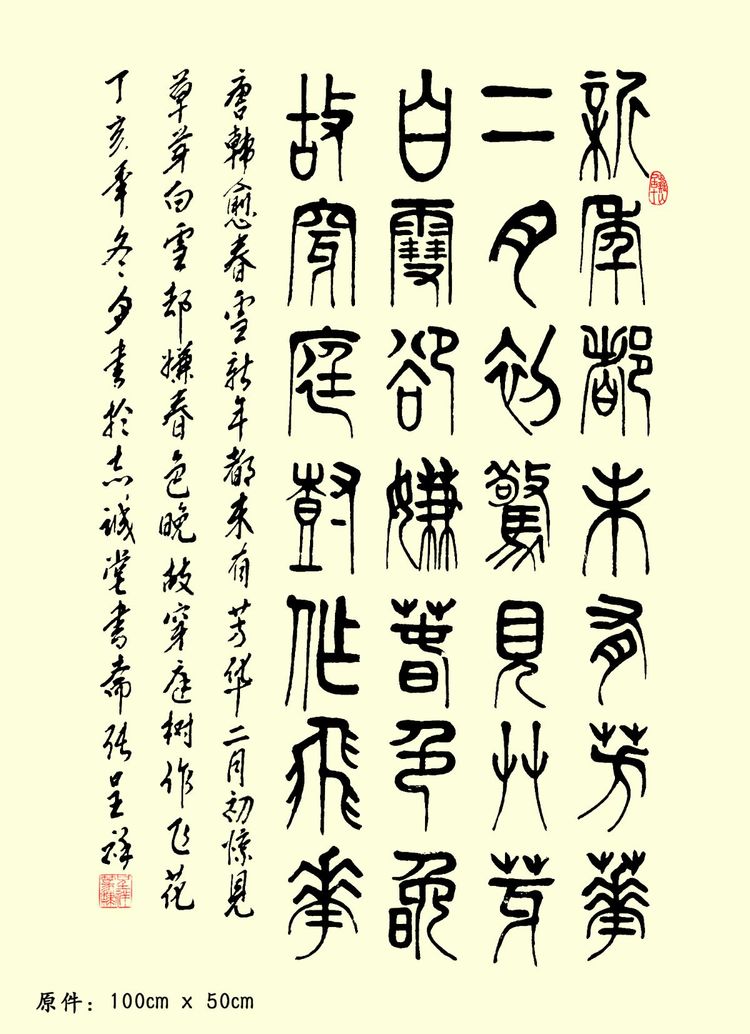 新年都未有芳華
二月初驚見艸芽
白雪卻嫌春色晚
故穿庭樹作飛華
唐韓愈春雪新年都未有芳华二月初惊見
草芽白雪却嫌春色晚故穿庭树作飞花
丁亥年冬月書於志誠堂書斋张呈祥
原件：100cm x 50cm